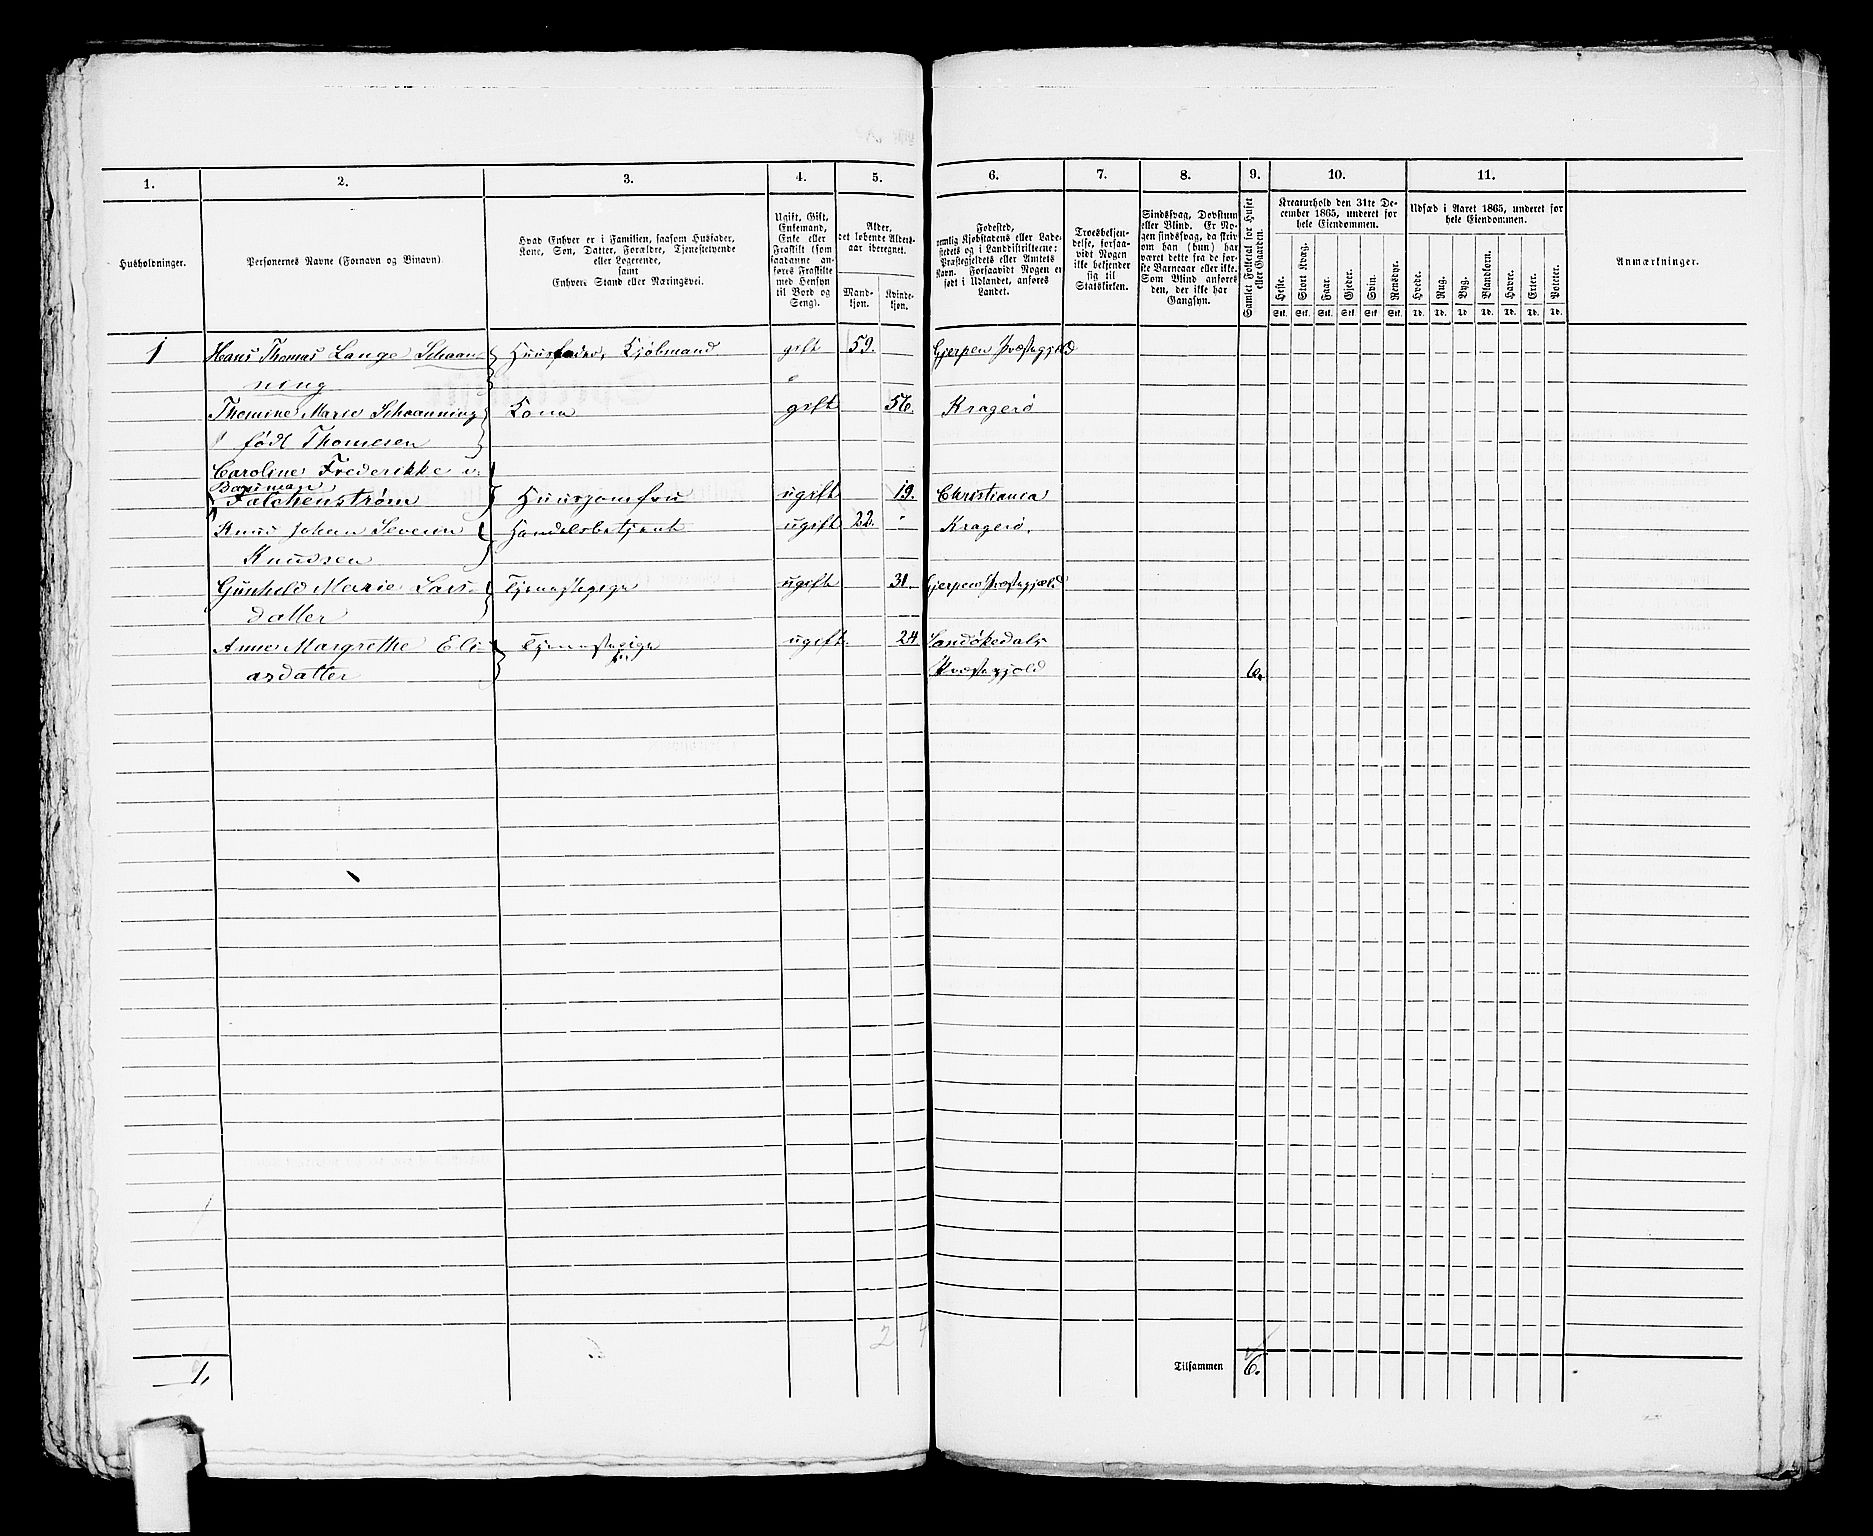 1. 2. 3. 4. 5. 6. 7. 8. 9. 10. 11.
Husholdninger.
Personernes Navne (Fornavn og Binavn).
Hvad Enhver er i Familien, saasom Husfader,
Kone, Søn, Datter, Forældre, Tjenestetyende
eller Logerende,
samt
Enhvers Stand eller Næringsvei.
Ugift, Gift,
Enkemand,
Enke eller
Fraskilt (som
saadanne an-
føres Fraskilte
med Hensyn
til Bord og
Seng).
Alder,
det løbende Alders-
aar iberegnet.
Mand-
kjøn.
Kvinde-
kjøn.
Fødested,
nemlig Kjøbstadens eller Lade-
stedets og i Landdistrikterne:
Præstegjeldets eller Amtets
Navn. Forsaavidt Nogen er
født i Udlandet, anføres
Landet.
Troesbekjen-
delse, forsaa-
vidt Nogen
ikke bekjender
sig til
Statskirken.
Sindssvag, Døvstum
eller Blind. Er No-
gen sindssvag, da skriv
om han (hun) har
været dette fra de før-
ste Barneaar eller ikke.
Som Blind anføres
den, der ikke har
Gangsyn.
Samlet Folketal for Huset
eller Gaarden.
Kreaturhold den 31te De-
cember 1865, underet for
hele Eiendommen.
Heste. Stort Kvæg. Faar. Gjeder. Svin. Rensdyr.
Stk. Stk. Stk. Stk. Stk. Stk.
Udsæd i Aaret 1865, underet for
hele Eiendommen.
Hvede. Rug. Byg. Blandkorn. Havre. Erter. Poteter.
Td. Td. Td. Td. Td. Td. Td.
Anmærkninger.
1 Hans Thomas Lange Schaan- Huusfader, Kjøbmand gift 59. Gjerpen Præstegjeld
ning
Thomine Marie Schaanning Kone gift 56. Kragerø
født Thomesen
Caroline Frederikke
Falchenstrøm Huusjomfru ugift 19. Christiania
Johan Severin Handelsbetjent ugift 22. Kragerø.
Knudsen
Gunhild Marie Lars- Tjenestepige ugift 31. Gjerpens Præstegjæld
datter
Anne Margrethe Eli- Tjenestepige ugift. 24 Sandøkedals
asdatter Præstegjeld 6.
2 4
1. Tilsammen 6.